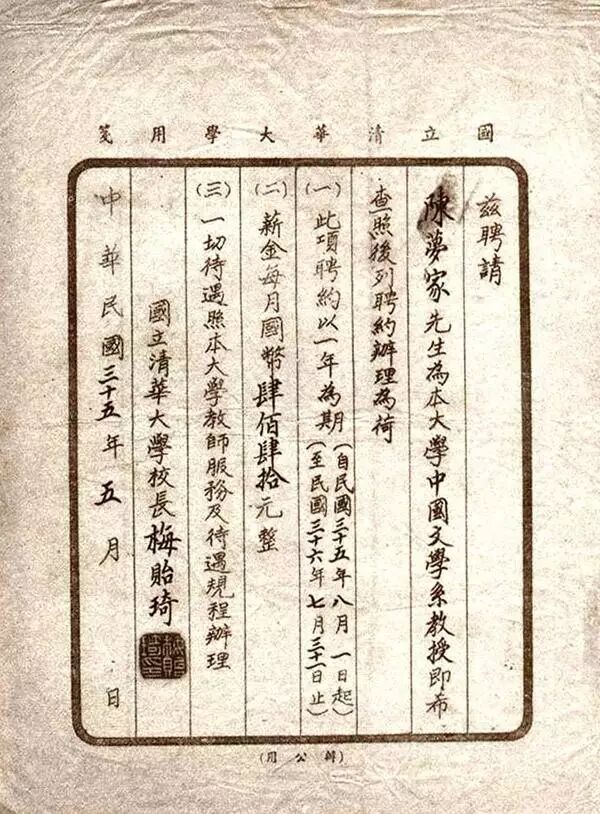 國立清華大學用箋
茲聘請
陳夢家先生為本大學中國文學系教授即希
查照後列聘約辦理為荷
(一)此項聘約以一年為期(自民國三十五年八月一日起至民國三十六年七月三十一日止)
(二)薪金每月國幣肆佰肆拾元整
(三)一切待遇照本大學教師服務及待遇規程辦理
國立清華大學校長梅貽琦
中華民國三十五年五月 日
(辦公用)